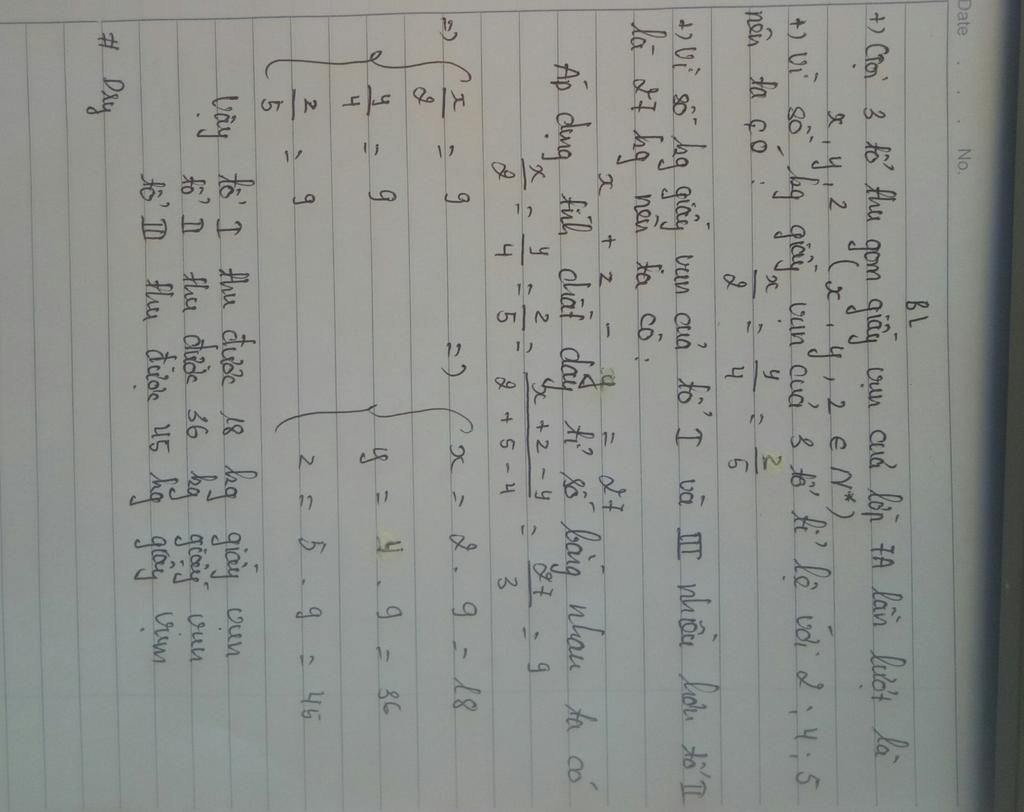 Date . . . No.
BL
+) Gọi 3 tổ thu gom giấy vụn của lớp 7A lần lượt là
x, y, z (x, y, z ∈ N*)
+) Vì số kg giấy vụn của 3 tổ tỉ lệ với 2; 4; 5
nên ta có: x/2 = y/4 = z/5
+) Vì số kg giấy vụn của tổ I và III nhiều hơn tổ II
là 27 kg nên ta có:
x + z - y = 27
Áp dụng tính chất dãy tỉ số bằng nhau ta có
x/2 = y/4 = z/5 = (x + z - y)/(2 + 5 - 4) = 27/3 = 9
=> { x/2 = 9 => { x = 2 . 9 = 18
y/4 = 9 y = 4 . 9 = 36
z/5 = 9 z = 5 . 9 = 45
Vậy tổ I thu được 18 kg giấy vụn
tổ II thu được 36 kg giấy vụn
tổ III thu được 45 kg giấy vụn